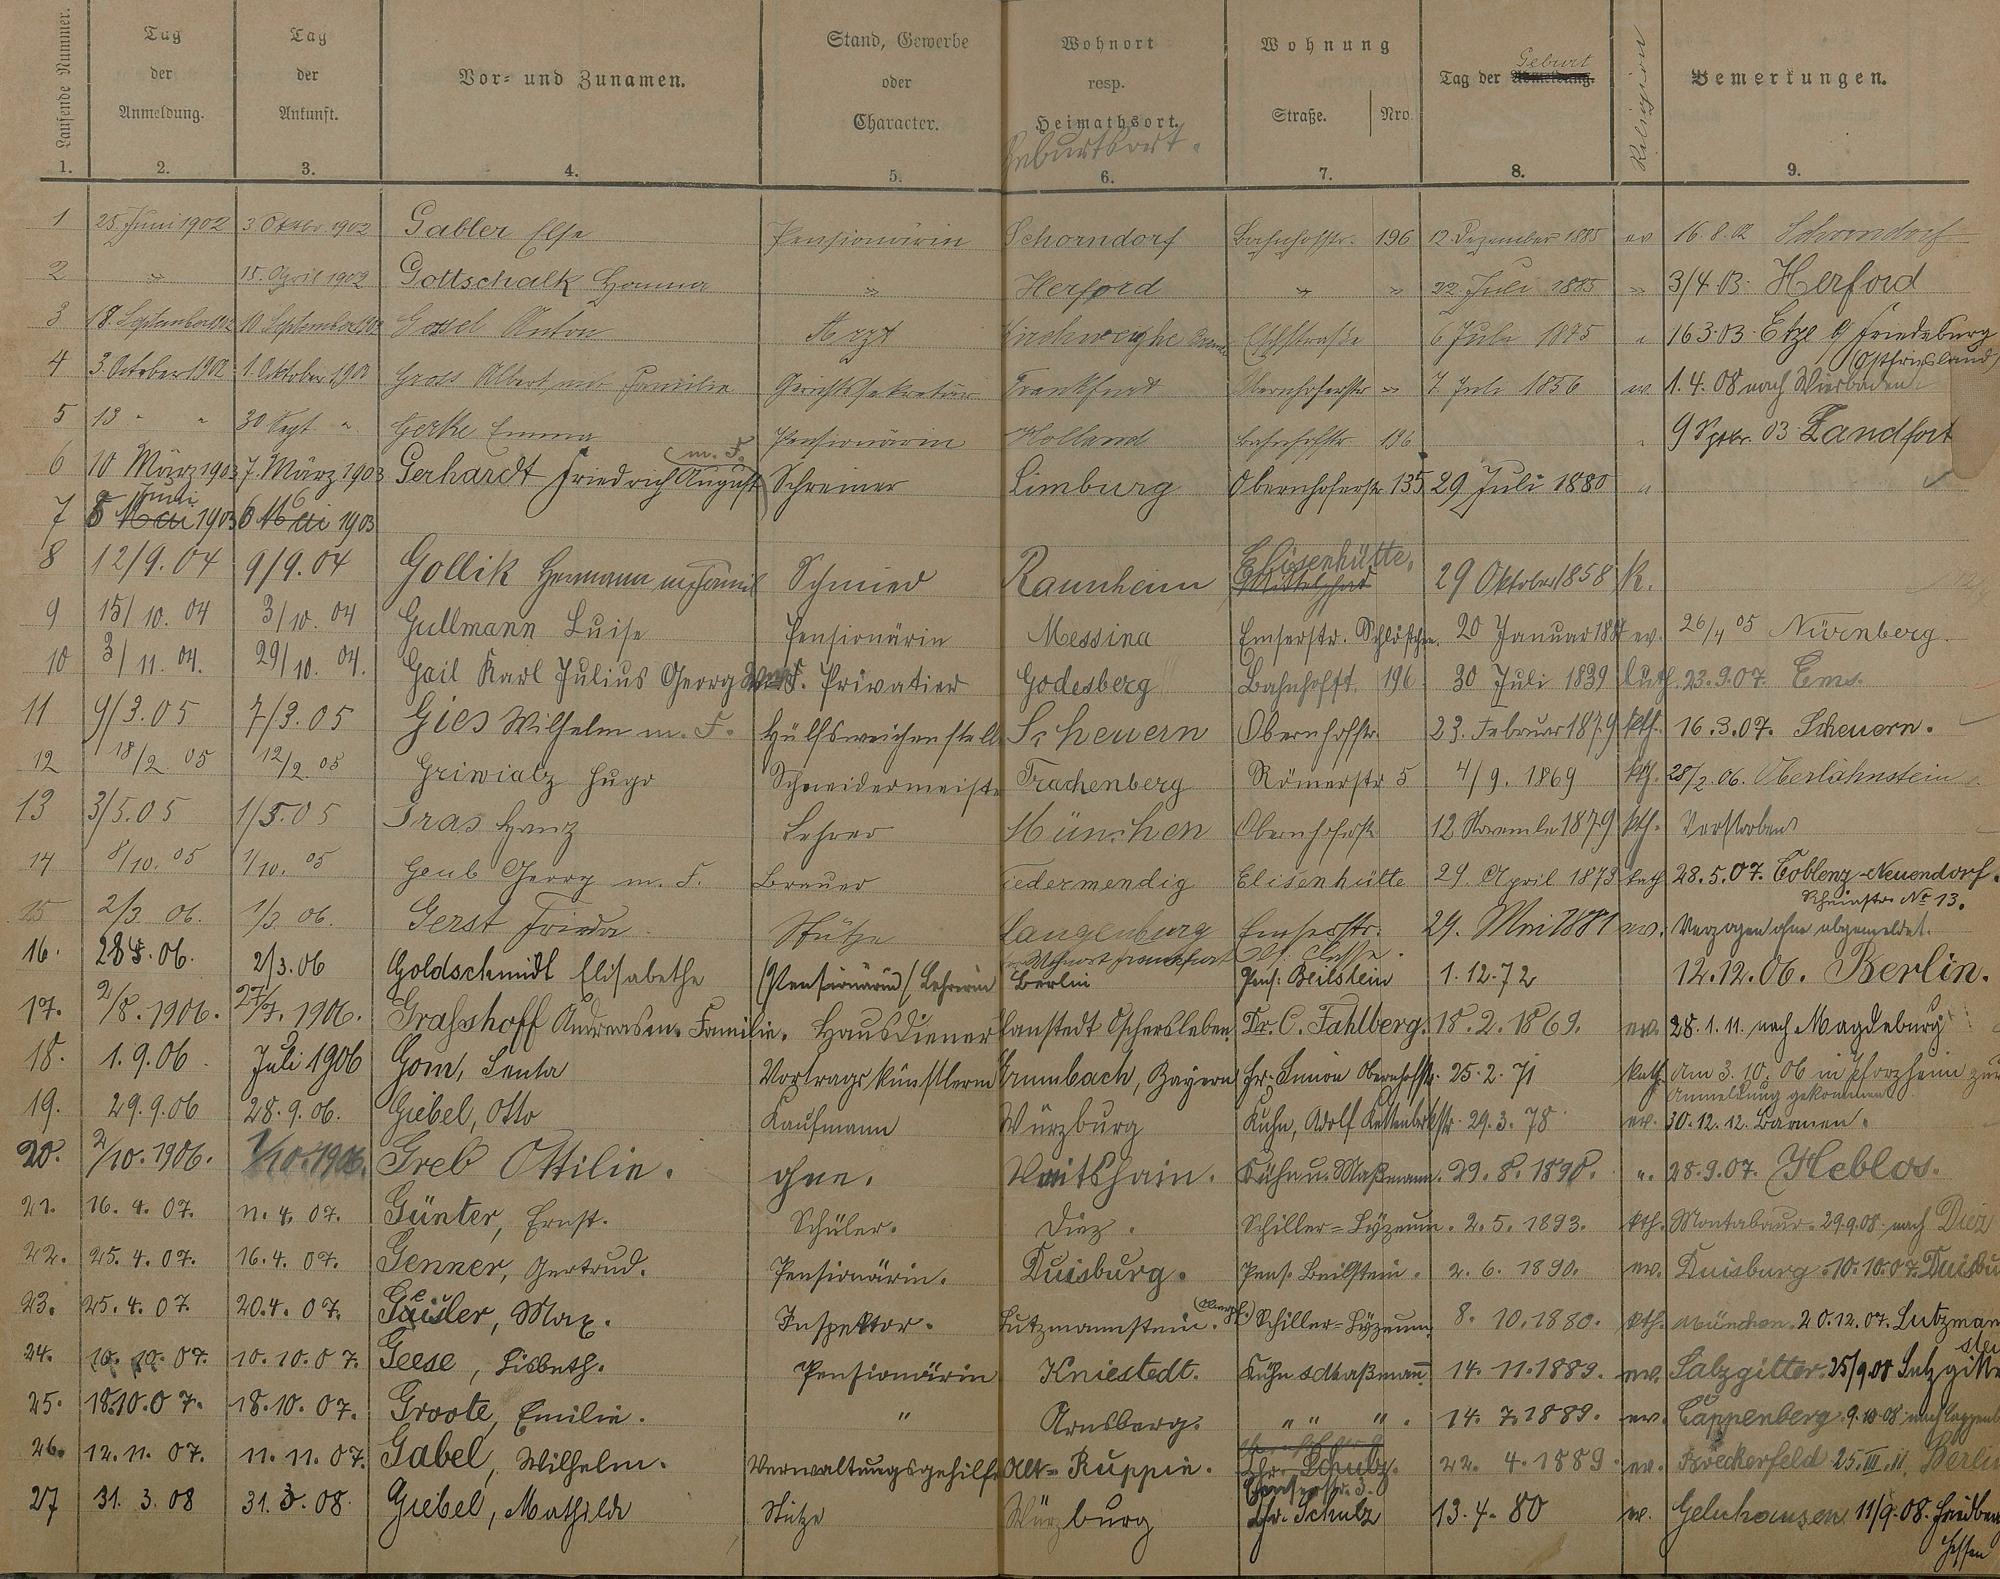 Laufende Nummer. | Tag der Anmeldung. | Tag der Ankunft. | Vor- und Zunamen. | Stand, Gewerbe oder Character. | Wohnort resp. Heimathsort. Geburtsort. | Wohnung Straße. Nro. | Tag der Abmeldung. Geburt | Religion | Bemerkungen.
1. 2. 3. 4. 5. 6. 7. 8. 9.
1 25 Juni 1902 3 Oktbr 1902 Gabler Else Pensionärin Schorndorf Bahnhofstr. 196 12 Dezember 1885 ev 16.8.02 Schorndorf
2 " 15. April 1902 Gottschalk Hanna " Herford " " 22 Juli 1885 " 3/4.03. Herford
3 18. September 1902 10 September 1902 Gossel Anton Arzt Kirchweyhe 6 Juli 1875 " 16.3.03. Etzel b Friedeburg (Ostfriesland)
4 3. October 1902 1. Oktober 1902 Gross Albert und Familie Gerichtssekretär Frankfurt Obernhoferstr " 7 Juli 1856 ev. 1.4.08 nach Wiesbaden
5 13 " " 30 Sept " Gerke Emma Pensionärin Holland Bahnhofstr 196 " 9 Sptbr. 03 Zandfort
6 10 März 1903 7. März 1903 Gerhardt Friedrich August (m. F.) Schreiner Limburg Obernhoferstr 135 29 Juli 1880 "
7 8 Mai Juni 1903 6 Mai 1903
8 12/9.04 9/9.04 Gollik Hermann m Famil Schmied Raunheim Elisenhütte, 29 Oktober 1858 K.
9 15/10.04 3/10.04 Gullmann Luise Pensionärin Messina Emserstr. Schlößchen. 20 Januar ev. 26/4 05 Nürnberg.
10 3/11.04. 29/10.04. Gail Karl Julius Georg F. Privatier Godesberg Bahnhofst. 196 30 Juli 1839 luth. 23.9.07. Ems.
11 9/3.05 7/3.05 Gies Wilhelm m. F. Hülfsweichenstell Scheuern Obernhofstr. 23. Februar 1879 kth. 16.3.07. Scheuern.
12 18/2.05 12/2.05 Griwialz Hugo Schneidermeister Trachenberg Römerstr 5 4/9.1869 kth. 28/2.06. Oberlahnstein
13 3/5.05 1/5.05 Gras Hanz Lehrer München Obernhoferst. 12 November 1879 kth. Verstorben
14 8/10.05 1/10.05 Geub Georg m. F. Brauer Niedermendig Elisenhütte 29. April 1873 kath 28.5.07. Coblenz-Neuendorf. Rheinstr. No 13.
15 2/3 06. 1/3 06. Gerst Frieda Stütze Langenburg Emserstr. 29. Mai 1881 ev. Verzogen ohne abgemeldet.
16. 28.5.06. 2/3.06 Goldschmidt Elisabethe (Pensionärin) Lehrerin Wohnort Frankfurt Berlin Pens. Beilstein 1.12.72 12.12.06. Berlin.
17. 2/8.1906. 27/7.1906. Grasshoff Andreas m. Familie. Hausdiener Hanstedt Oschersleben. Dr. C. Fahlberg. 18.2.1869. ev. 28.1.11. nach Magdeburg
18. 1.9.06 Juli 1906 Gom, Senta Vortragskünstlerin Krumbach, Bayern Fr. Simon Obernhofstr. 25.2.71 kath. Am 3.10.06 in Pforzheim zur Anmeldung gekommen
19. 29.9.06 28.9.06. Giebel, Otto Kaufmann Würzburg Kuhn, Adolf 29.3.78 ev. 30.12.12. Barmen.
20. 2/10.1906. 1/10.1906. Greb Ottilie. ohne. Veitshain. Kühn u. Maßmann. 29.8.1890. ". 28.9.07. Heblos.
21. 16.4.07. 11.4.07. Günter, Ernst. Schüler. Diez. Schiller-Lyzeum. 2.5.1893. kth. Montabaur. 29.9.08. nach Diez
22. 25.4.07. 16.4.07. Genner, Gertrud. Pensionärin. Duisburg. Pens. Beilstein. 2.6.1890. ev. Duisburg. 10.10.07. Duisbu
23. 25.4.07. 20.4.07. Geisler, Max. Inspektor. Lutzmannstein. (Oberpf.) Schiller-Lyzeum. 8.10.1880. kth. München. 20.12.07. Lutzmanstein
24. 10.10.07. 10.10.07. Geese, Lisbeth. Pensionärin Kniestedt. Kühn & Maßmann. 14.11.1889. ev. Salzgitter. 25/9.08 Salzgitte
25. 18.10.07. 18.10.07. Groote, Emilie. " Arnsberg. " " ". 14.7.1889. ev. Cappenberg. 9.10.08. nach Cappenb
26. 12.11.07. 11.11.07. Gabel, Wilhelm. Verwaltungsgehilfe Alt-Ruppin. Chr. Schulz. 22.4.1889. ev. Böckerfeld 25.III.11. Berlin
27 31.3.08 31.3.08. Giebel, Mathilde Stütze Würzburg Chr. Schulz 13.4.80 ev. Gelnhausen 11/9.08. Friedber Hessen